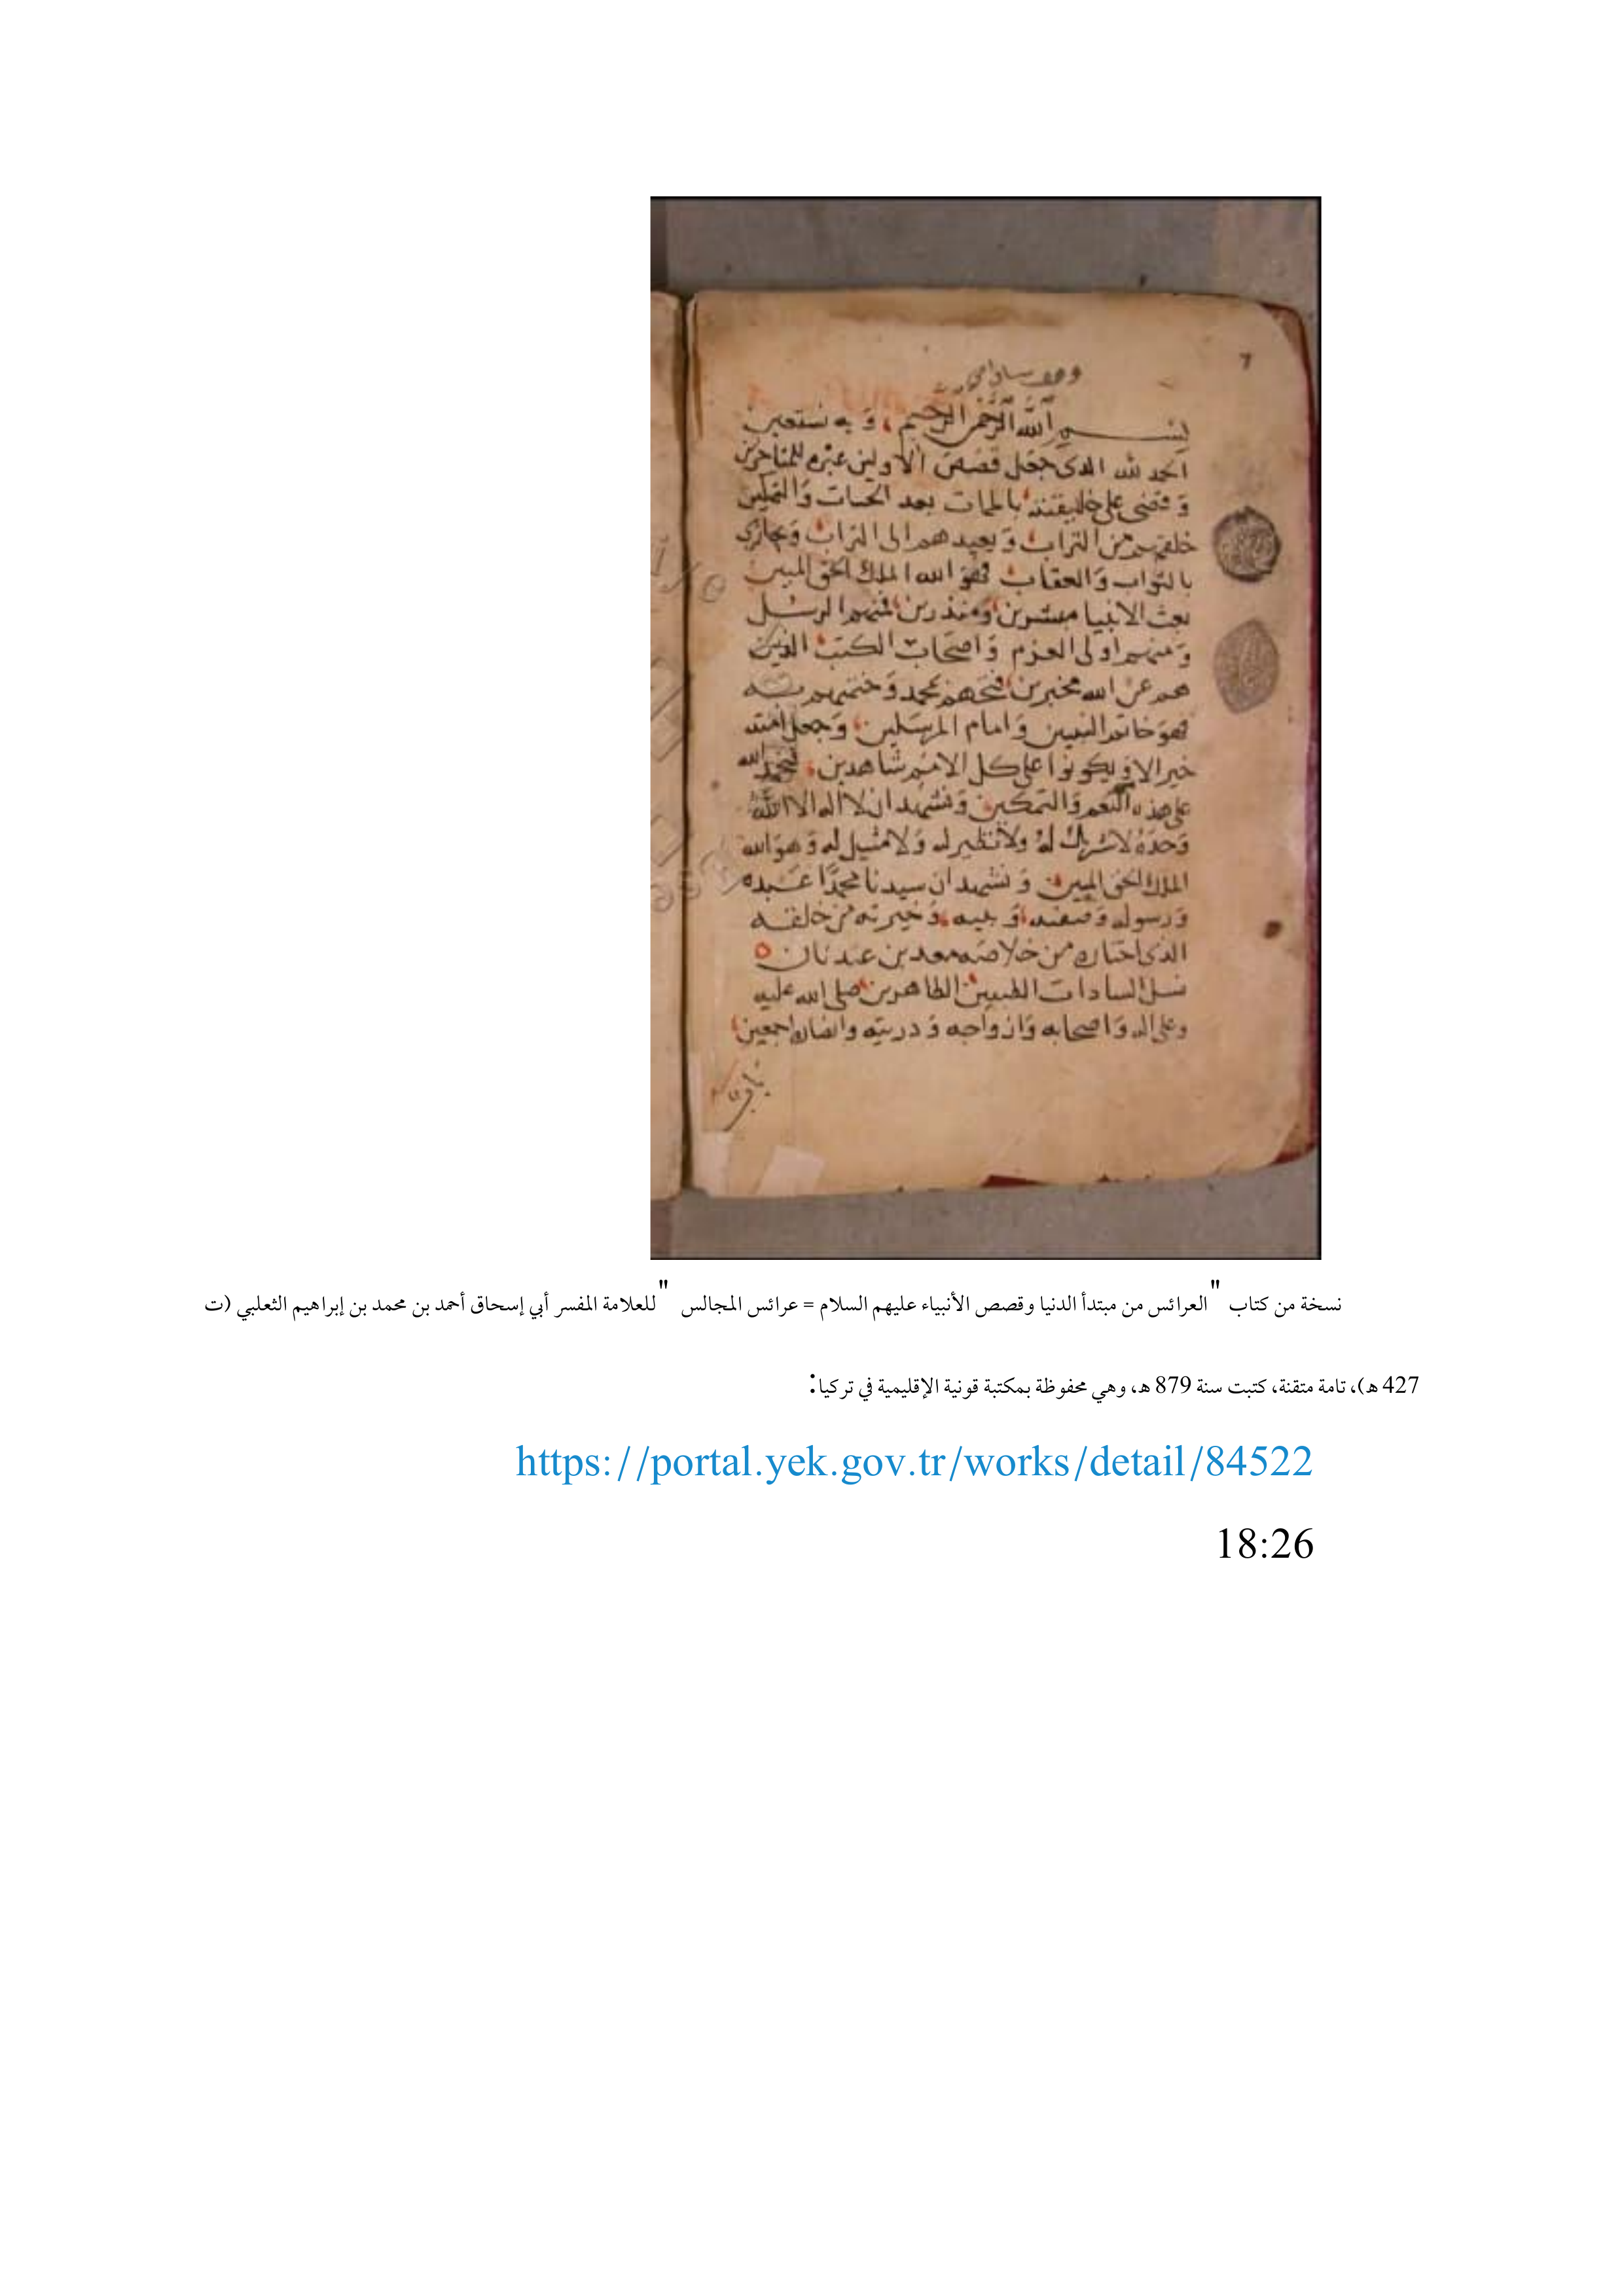 بسم الله الرحمن الرحيم وبه نستعين
الحمد لله الدى جعل قصص الاولين عبره للمتاخرين
وقضى على خليقته بالممات بعد الحيات والتمكين
خلقهم من التراب ويعيدهم الى التراب ويجازى
بالثواب والعقاب فهو الله الملك الحق المبين
بعث الانبيا مبشرين ومنذرين فمنهم الرسل
ومنهم اولى العزم واصحاب الكتب الذين
هم عن الله مخبرين محمد وختمهم به
فهو خاتم النبيين وامام المرسلين وجعل امته
خير الامم ويكونوا على كل الامم شاهدين نحمد الله
على هذه النعم والتمكين ونشهد ان لا اله الا الله
وحده لا شريك له ولا نظير له ولا مثيل له وهو الله
الملك الحق المبين ونشهد ان سيدنا محمدا عبده
ورسوله وخيرته من خلقه
الذى اختاره من خلاصه معد بن عدنان
نسل السادات الطيبين الطاهرين صلى الله عليه
وعلى اله واصحابه وازواجه ودريته وانصاره اجمعين
نسخة من كتاب "العرائس من مبتدأ الدنيا وقصص الأنبياء عليهم السلام = عرائس المجالس " للعلامة المفسر أبي إسحاق أحمد بن محمد بن إبراهيم الثعلبي (ت
427 هـ)، تامة متقنة، كتبت سنة 879 هـ، وهي محفوظة بمكتبة قونية الإقليمية في تركيا:
https://portal.yek.gov.tr/works/detail/84522
18:26